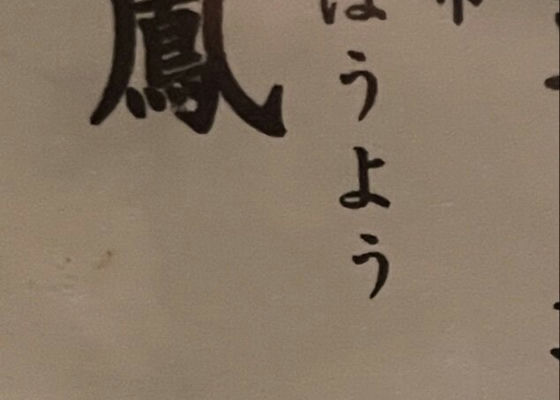 ほうよう
鳳